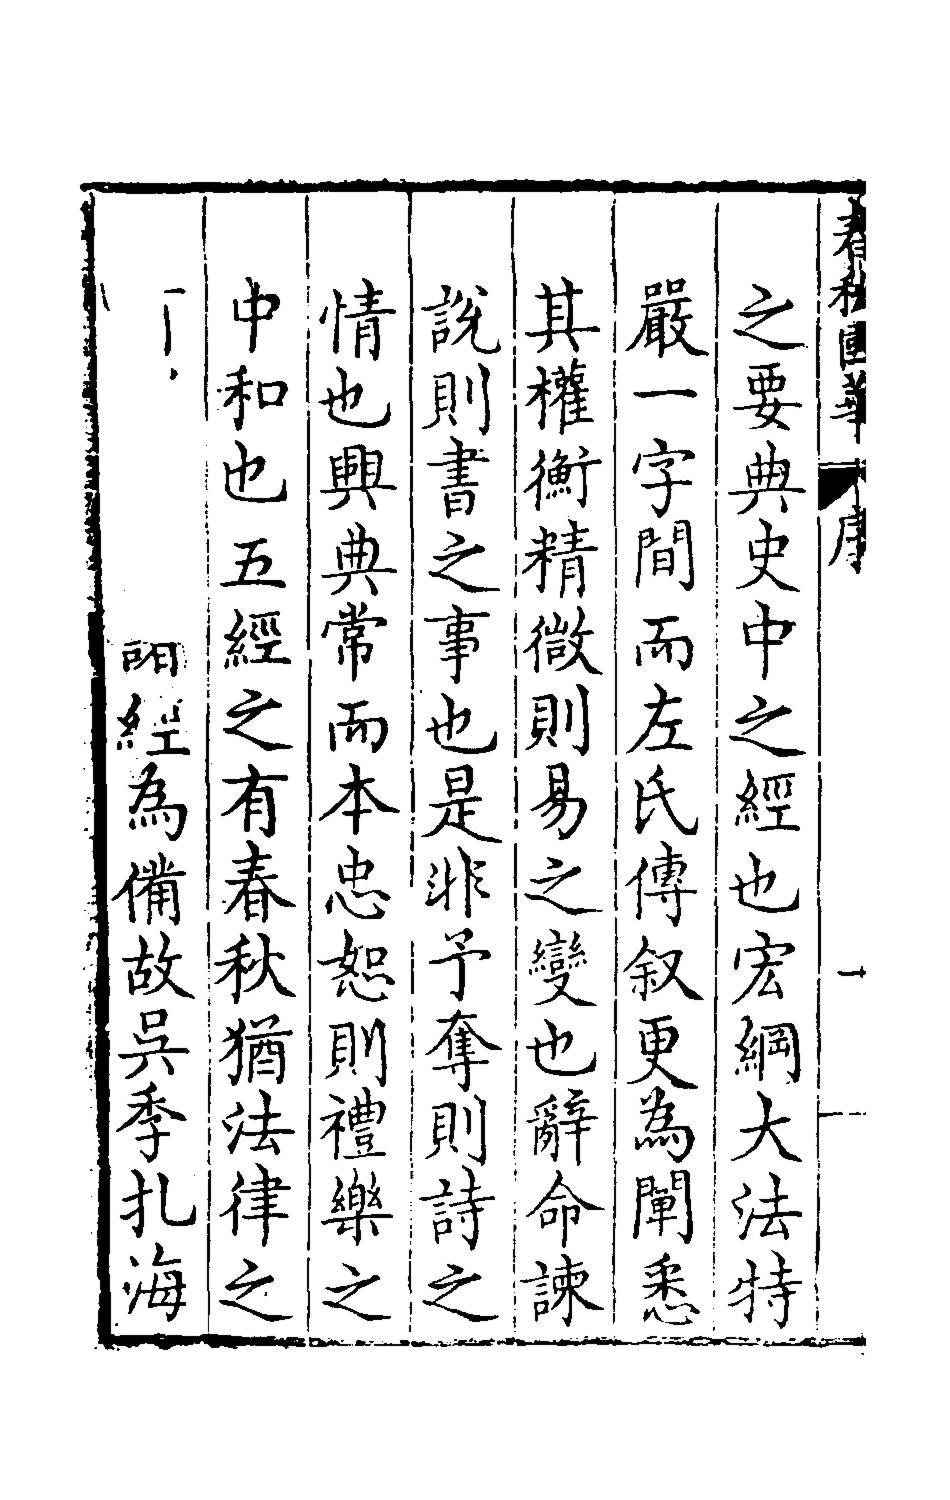 春秋國華 序 一
之要典史中之經也宏綱大法特
嚴一字間而左氏傳叙更為闡悉
其權衡精微則易之變也辭命諫
說則書之事也是非予奪則詩之
情也興典常而本忠恕則禮樂之
中和也五經之有春秋猶法律之
經為備故吳季扎海